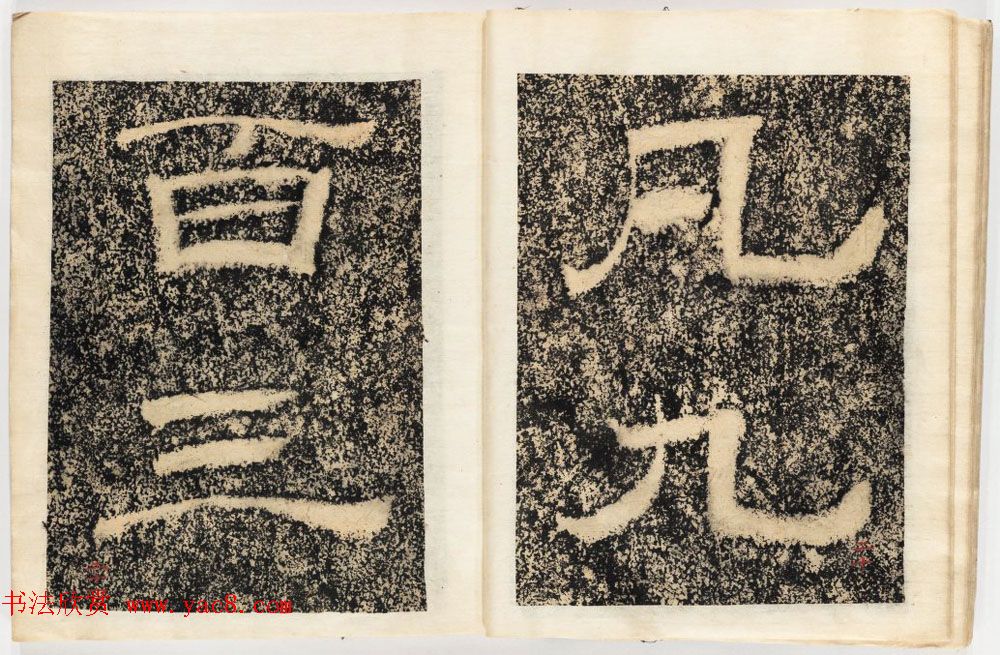 凡九
百三
书法欣赏 www.yac8.com